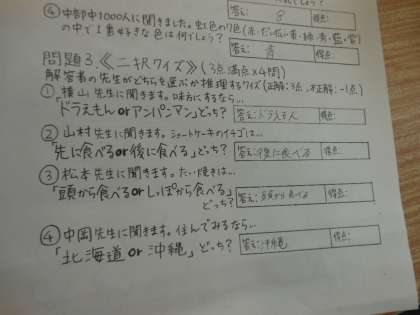 答え: 8 得点:
④中部中1000人に聞きました。虹色の7色(赤・だいだい・黄・緑・青・藍・紫)
の中で1番好きな色は何でしょう? 答え: 青 得点:
問題3.《二択クイズ》(3点満点×4問)
解答者の先生がどちらを選ぶか推理するクイズ(正解:3点、不正解:-1点)
①横山先生に聞きます。味方にするなら…
「ドラえもんorアンパンマン」どっち? 答え:ドラえもん 得点:
②山村先生に聞きます。ショートケーキのイチゴは…
「先に食べるor後に食べる」どっち? 答え:後に食べる 得点:
③松本先生に聞きます。たい焼きは…
「頭から食べるorしっぽから食べる」
どっち? 答え:頭から食べる 得点:
④中岡先生に聞きます。住んでみるなら…
「北海道or沖縄」どっち? 答え:沖縄 得点: